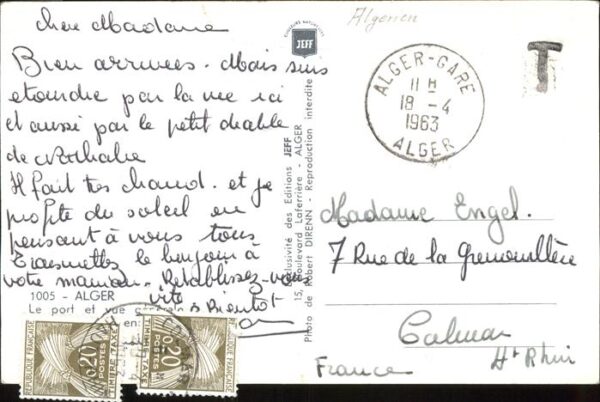 Chere Madame
Bien arrivées. Mais suis
etourdie par la vie ici
et aussi par le petit diable
de Nathalie
Il fait très chaud. et je
profite du soleil en
pensant à vous tous
Transmettez le bonjour à
votre maman. Retablissez-vous
vite
à Bientot
1005 - ALGER
Le port et vue générale
en
COULEURS NATURELLES
JEFF
Exclusivité des Editions JEFF
15, Boulevard Laferrière - ALGER
Photo de Robert DIRENN - Reproduction interdite
Algerien
ALGER-GARE
11 H
18 - 4
1963
ALGER
T
Madame Engel.
7 Rue de la Grenouillère
Colmar
Ht Rhin
France
REPUBLIQUE FRANÇAISE
0,20
POSTES
TIMBRE TAXE
REPUBLIQUE FRANÇAISE
0,20
POSTES
TIMBRE TAXE